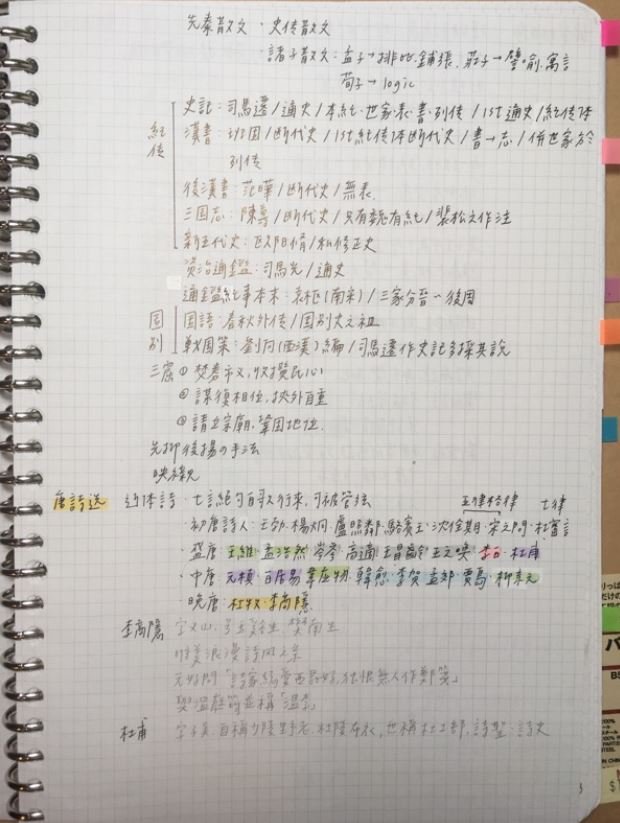 先秦散文・史传散文
・諸子散文:孟子→排比.鋪張.莊子→譬喻.寓言
荀子→logic
紀传
史記:司馬遷/通史/本紀・世家・表・書・列传/1st通史/紀传体
漢書:班固/断代史/1st紀传体断代史/書→志/併世家於
列传
後漢書:范曄/断代史/無表
三国志:陳壽/断代史/只有魏有紀/裴松之作注
新五代史:欧阳脩/私修正史
資治通鑑:司馬光/通史
通鑑紀事本末:袁枢(南宋)/三家分晉~後周
国別
国語:春秋外传/国别史之祖
戰国策:劉向(西漢)編/司馬遷作史記多採其說
三窟①焚券市义,收攬民心
②謀復相位,挾外自重
③請立宗廟,鞏固地位.
先抑後揚の手法
映緜
唐詩选 近体詩・七言絕句百歌行来,可被管弦
五律 律 七律
・初唐詩人:王勃・楊炯・盧照鄰・駱賓王・沈佺期・宋之問・杜審言
・盛唐:王維・孟浩然・岑參・高適・王昌齡・王之渙・李白・杜甫
・中唐:元稹・白居易・韋应物・韓愈・李贺・孟郊・賈島・柳宗元
・晚唐:杜牧・李商隱
李商隱 字义山,号玉谿生,樊南生
唯美浪漫詩風之宗
元好問「詩家緫愛西崑好,独恨無人作鄭箋」
與溫庭筠並稱「溫李」
杜甫 字子美,自稱少陵野老,杜陵布衣,也稱杜工部,詩聖,詩史
3